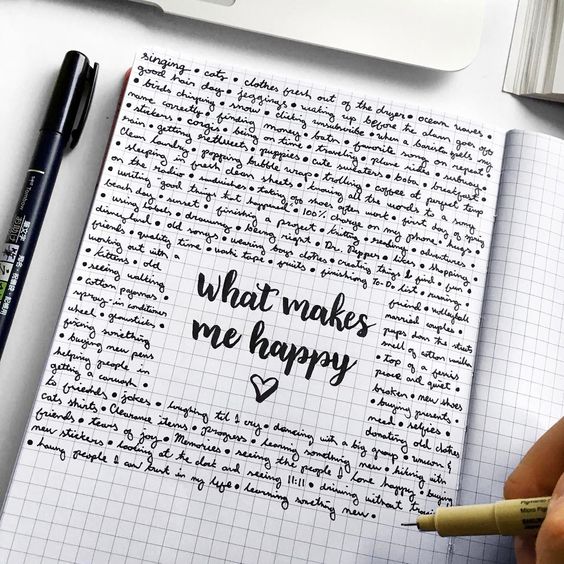 singing • cats • clothes fresh out of the dryer • ocean waves •
good hair day • jeggings • waking up before the alarm goes off
• birds chirping • snow • clicking unsubscribe • when a barista gets my
name correctly • finding money • bats • favorite song on repeat
• stickers • corgis • being on time • traveling • plane ride • subway •
hair • getting retweets • puppies • cute sweaters • boba • breakfast •
clean laundry • popping bubble wrap • trolling • coffee at perfect temp
• sleeping in fresh clean sheets • knowing all the words to a song
on the radio • munchies • taking off shoes after work • first day of spring
• writing good thing but happened • 100% charge on my phone • hugs
beach day • sunset • finishing a project • knitting • headlines • adventures
• using • drawing • being right • Dr. Pepper • likes • shopping
disneyland • old songs • wearing boys clothes • creating things • just fun •
friends • quality time • washi tape • fruits • finishing to Do list • running
working out with a friend • volleyball
kittens • old married couples •
• seeing walking pups down the streets
• cotton pajamas • smell of cotton
spray in conditioner • top of a ferris
wheel • peace and quiet •
fixing something broken • new shoes
• buying new pens • buying presents •
helping people in need • selfies •
getting a carwash • donating old clothes
what makes
me happy
to friends • jokes • laughing til I cry • dancing with a big group •
cats shirts • Clearance items • progress • learning something new • hiking with
friends • tears of joy • Memories • seeing the people I love happy • buying
new stickers • looking at the clock and seeing 11:11 • driving without traffic
• having people I can trust in my life • learning something new •
Tombow